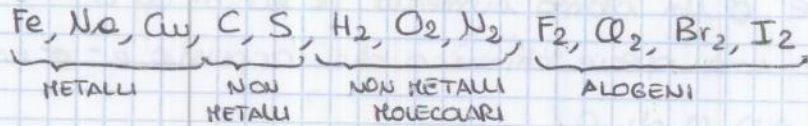 Fe, Na, Cu, C, S, H₂, O₂, N₂, F₂, Cl₂, Br₂, I₂,
METALLI NON METALLI NON METALLI MOLECOLARI ALOGENI